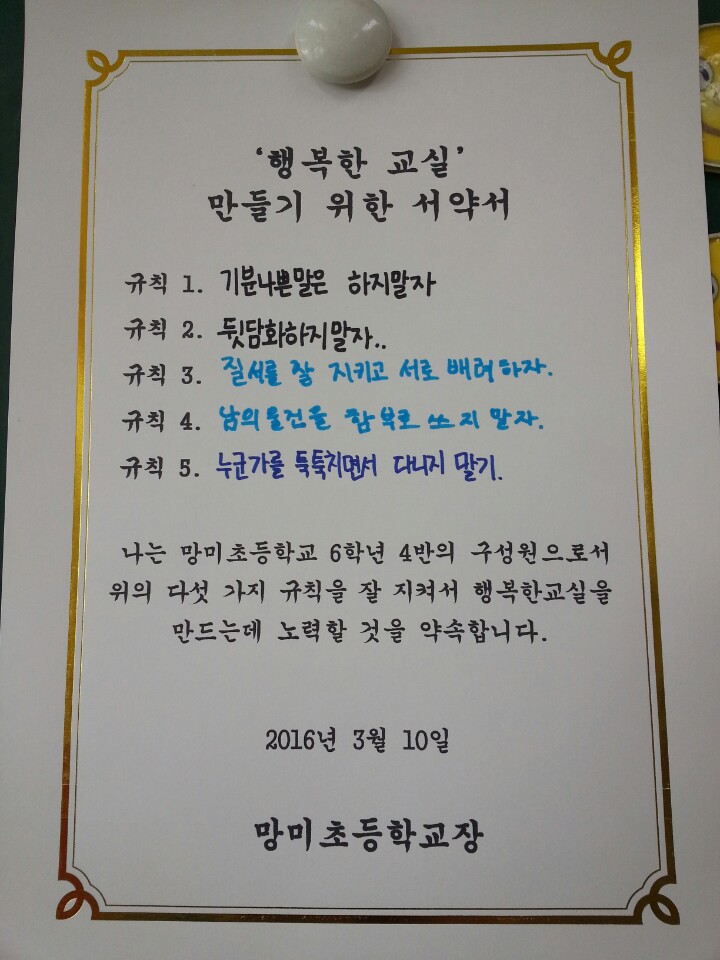 '행복한 교실'
만들기 위한 서약서
규칙 1. 기분나쁜말은 하지말자
규칙 2. 뒷담화하지말자..
규칙 3. 질서를 잘 지키고 서로 배려하자.
규칙 4. 남의 물건을 함부로 쓰지 말자.
규칙 5. 누군가를 툭툭치면서 다니지 말기.
나는 망미초등학교 6학년 4반의 구성원으로서
위의 다섯 가지 규칙을 잘 지켜서 행복한교실을
만드는데 노력할 것을 약속합니다.
2016년 3월 10일
망미초등학교장